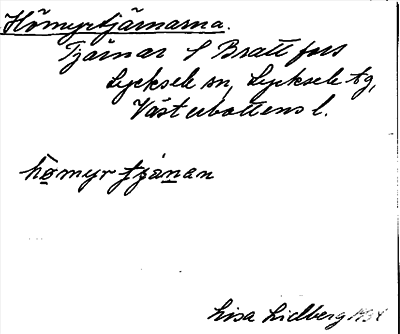 Hömyrtjärnarna.
Tjärnar S Brattfors
Lycksele sn, Lycksele tg,
Västerbottens l.
hömyrtjänan
Lisa Lidberg